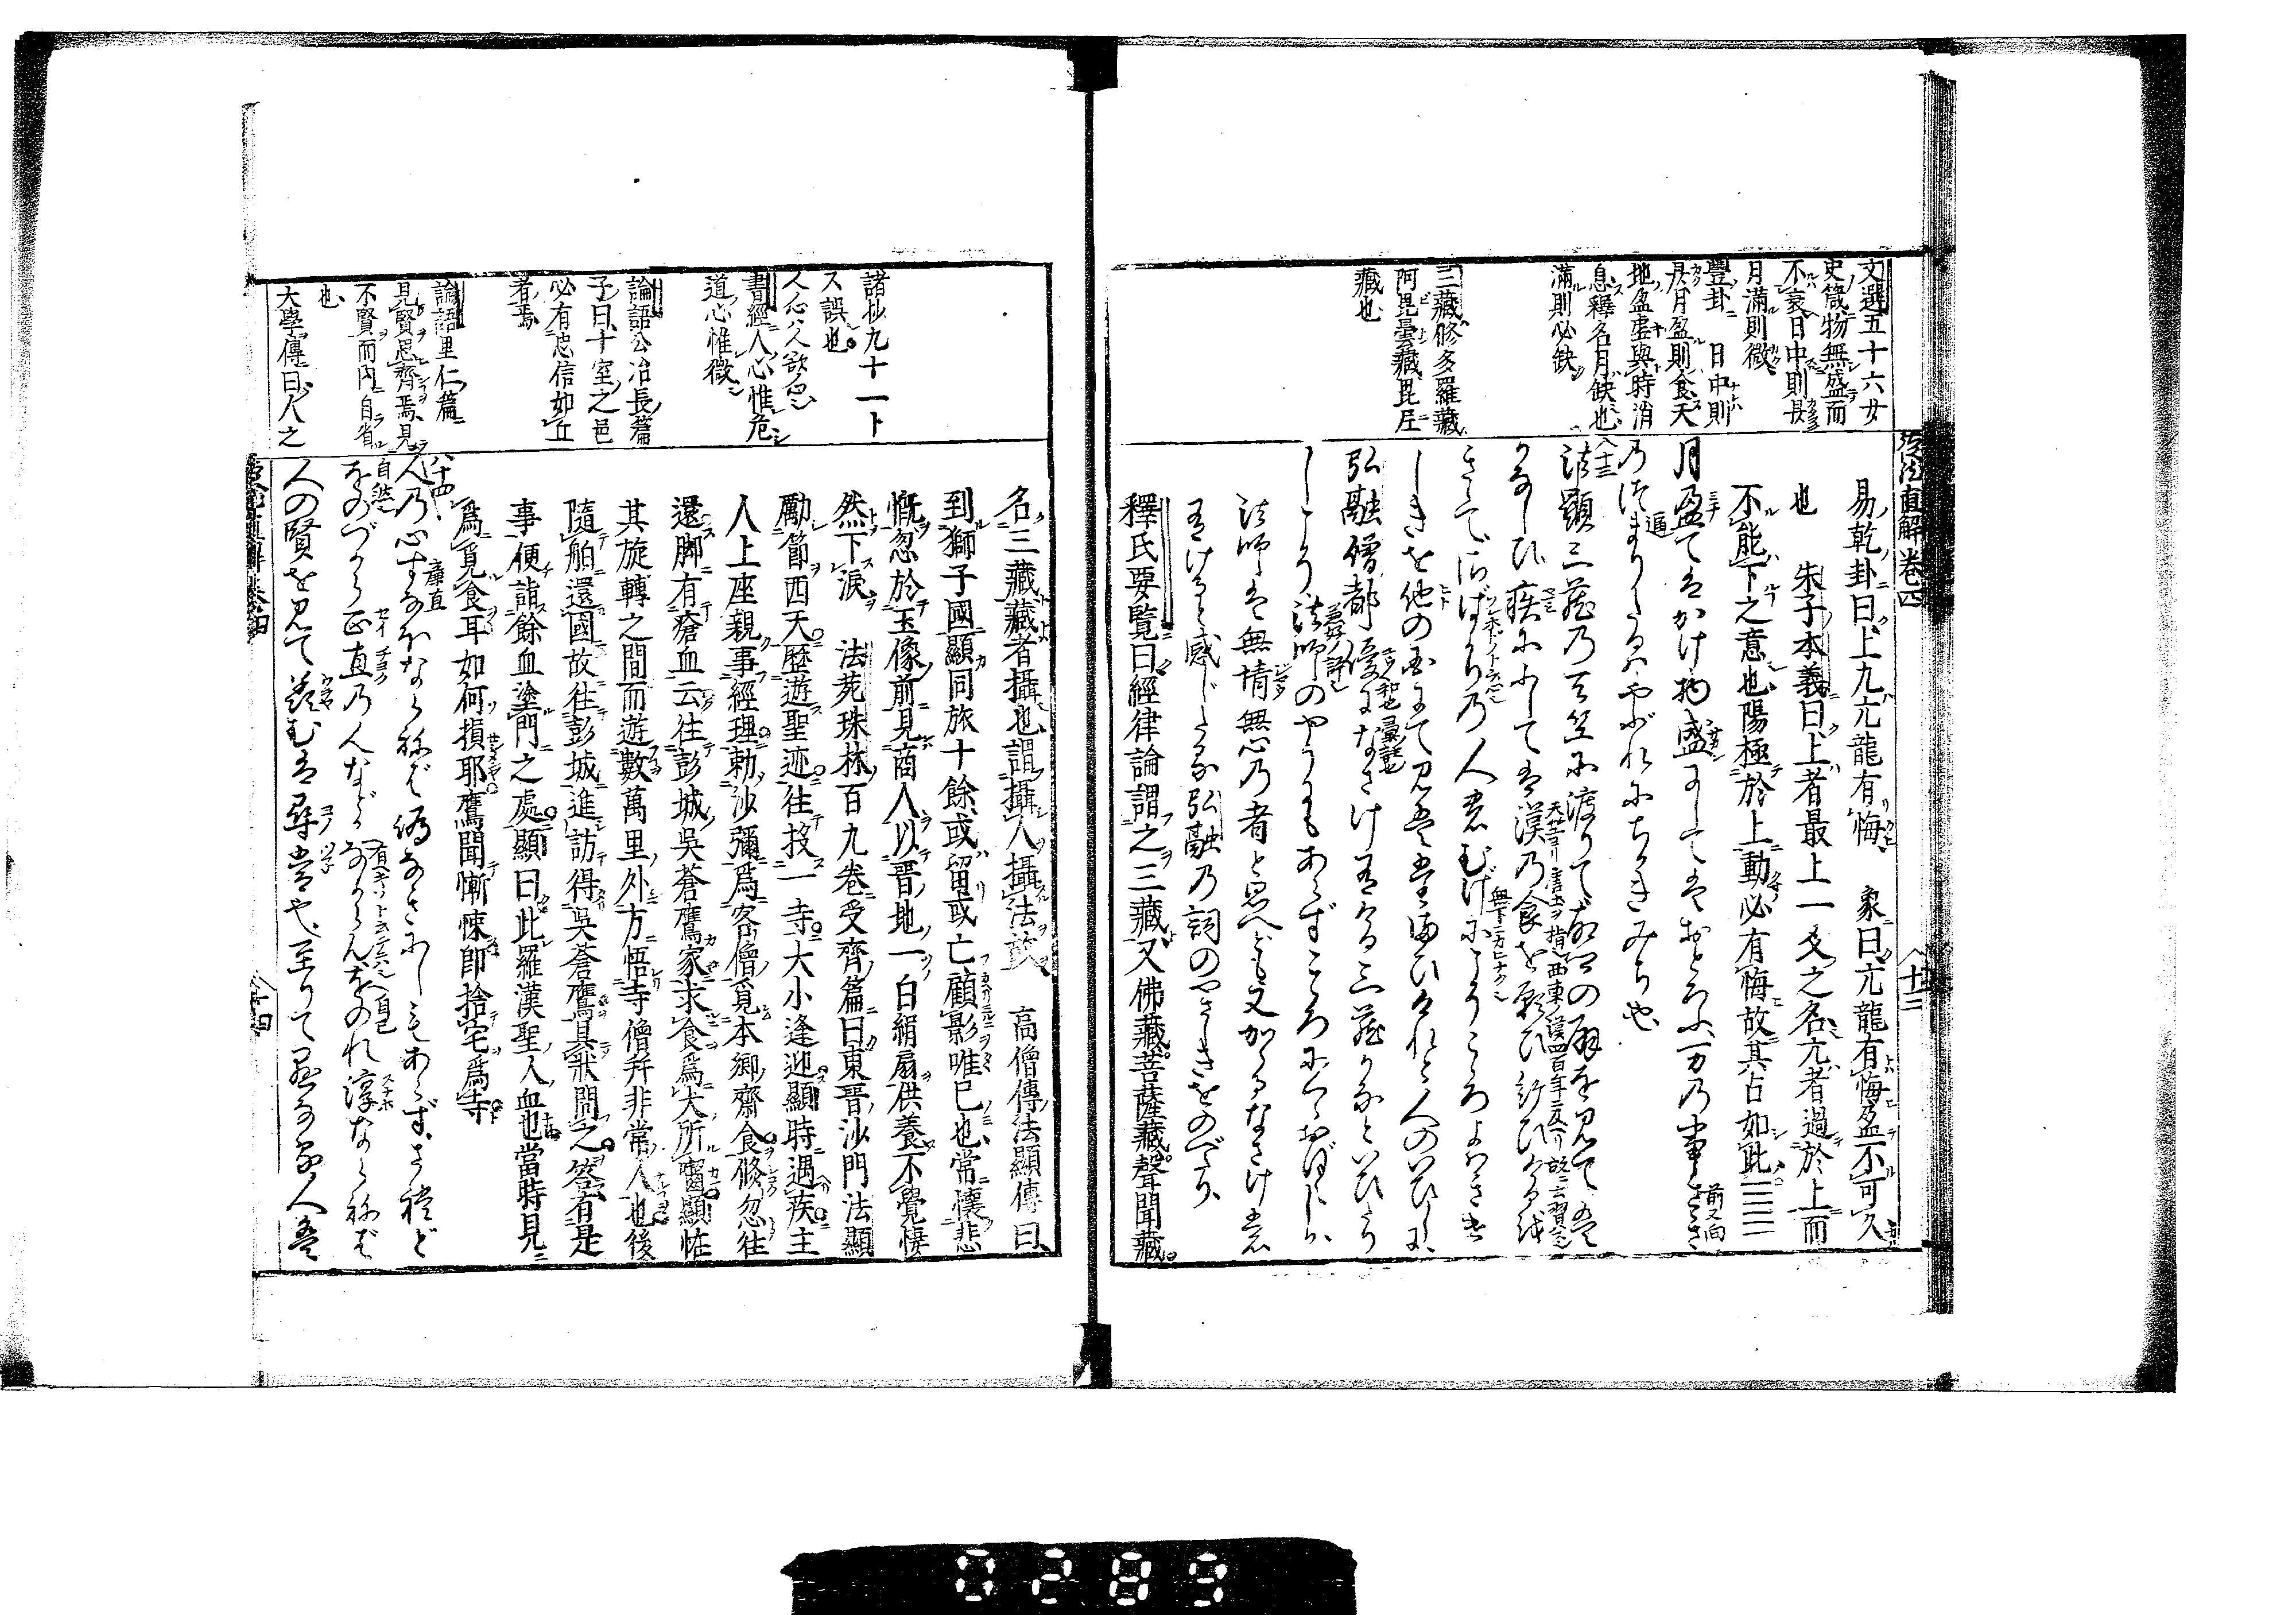 文選五十六女
史箴物無盛而
不衰日中則昃
月滿則微
豐卦 日中則
昃月盈則食天
地盈虚與時消
息釋名月缺也
滿則必缺
三藏修多羅藏
阿毘曇藏毘尼
藏也
易乾卦曰上九亢龍有悔 象曰亢龍有悔盈不可久
也 朱子本義曰上者最上一爻之名亢者過於上而
不能下之意也陽極於上動必有悔故其占如此
月盈てはかけ物盛にしては おとろふ万の事さき
のつまりたるはやぶれにちかきみち也
法顕三蔵の天竺に渡りて故郷の扇を見ては
かなしひ疾にふしては漢の食を願ひ給ひける
さて さばかりの人の むげにこそこころよはき
しきを他の国にて見え給ひけれと人のいひしに
弘融僧都優になさけありける三蔵かなといひたり
しこそ法師のやうにもあらずこころにくくおぼえしか
法師は無情無心の者と思へども又かかるなさけ
ありけると感じたる弘融の詞のやさしきをのべたり
釋氏要覽曰經律論謂之三藏又佛藏菩薩藏聲聞藏
徒然直解巻四
十三
諸抄九十一卜
ス誤也
人心ハ人欲ノ心
書經人心惟危
道心惟微
論語公冶長篇
子曰十室之邑
必有忠信如丘
者焉
論語里仁篇
見賢思齊焉見
不賢而内自省
也
大學傳曰人之
名三藏藏者攝也謂攝人攝法故 高僧傳法顯傳曰
到獅子國顯同旅十餘或留或亡顧影唯已也常懷悲
慨忽於玉像前見商人以晋地一白絹扇供養不覺悽
然下淚 法苑珠林百九卷受齊篇曰東晋沙門法顯
勵節西天歷遊聖迹往投一寺大小逢迎顯時遇疾主
人上座親事經理勅沙彌爲客僧覓本郷齋食倏忽往
還脚有瘡血云往彭城吳蒼鷹家求食爲犬所嚙顯恠
其旋轉之間而遊數萬里外方悟寺僧幷非常人也後
隨舶還國故往彭城進訪得吳蒼鷹具狀問之答有是
事便詣餘血塗門之處顯曰此羅漢聖人血也當時見
爲覓食耳如何損耶鷹聞慚悚卽捨宅爲寺
人の心すなほならねば偽なきにしもあらずされど
をのづから正直の人などかなからんをのれ淳ならねど
人の賢を見て羨むは尋常也至りて愚なる人は
十四